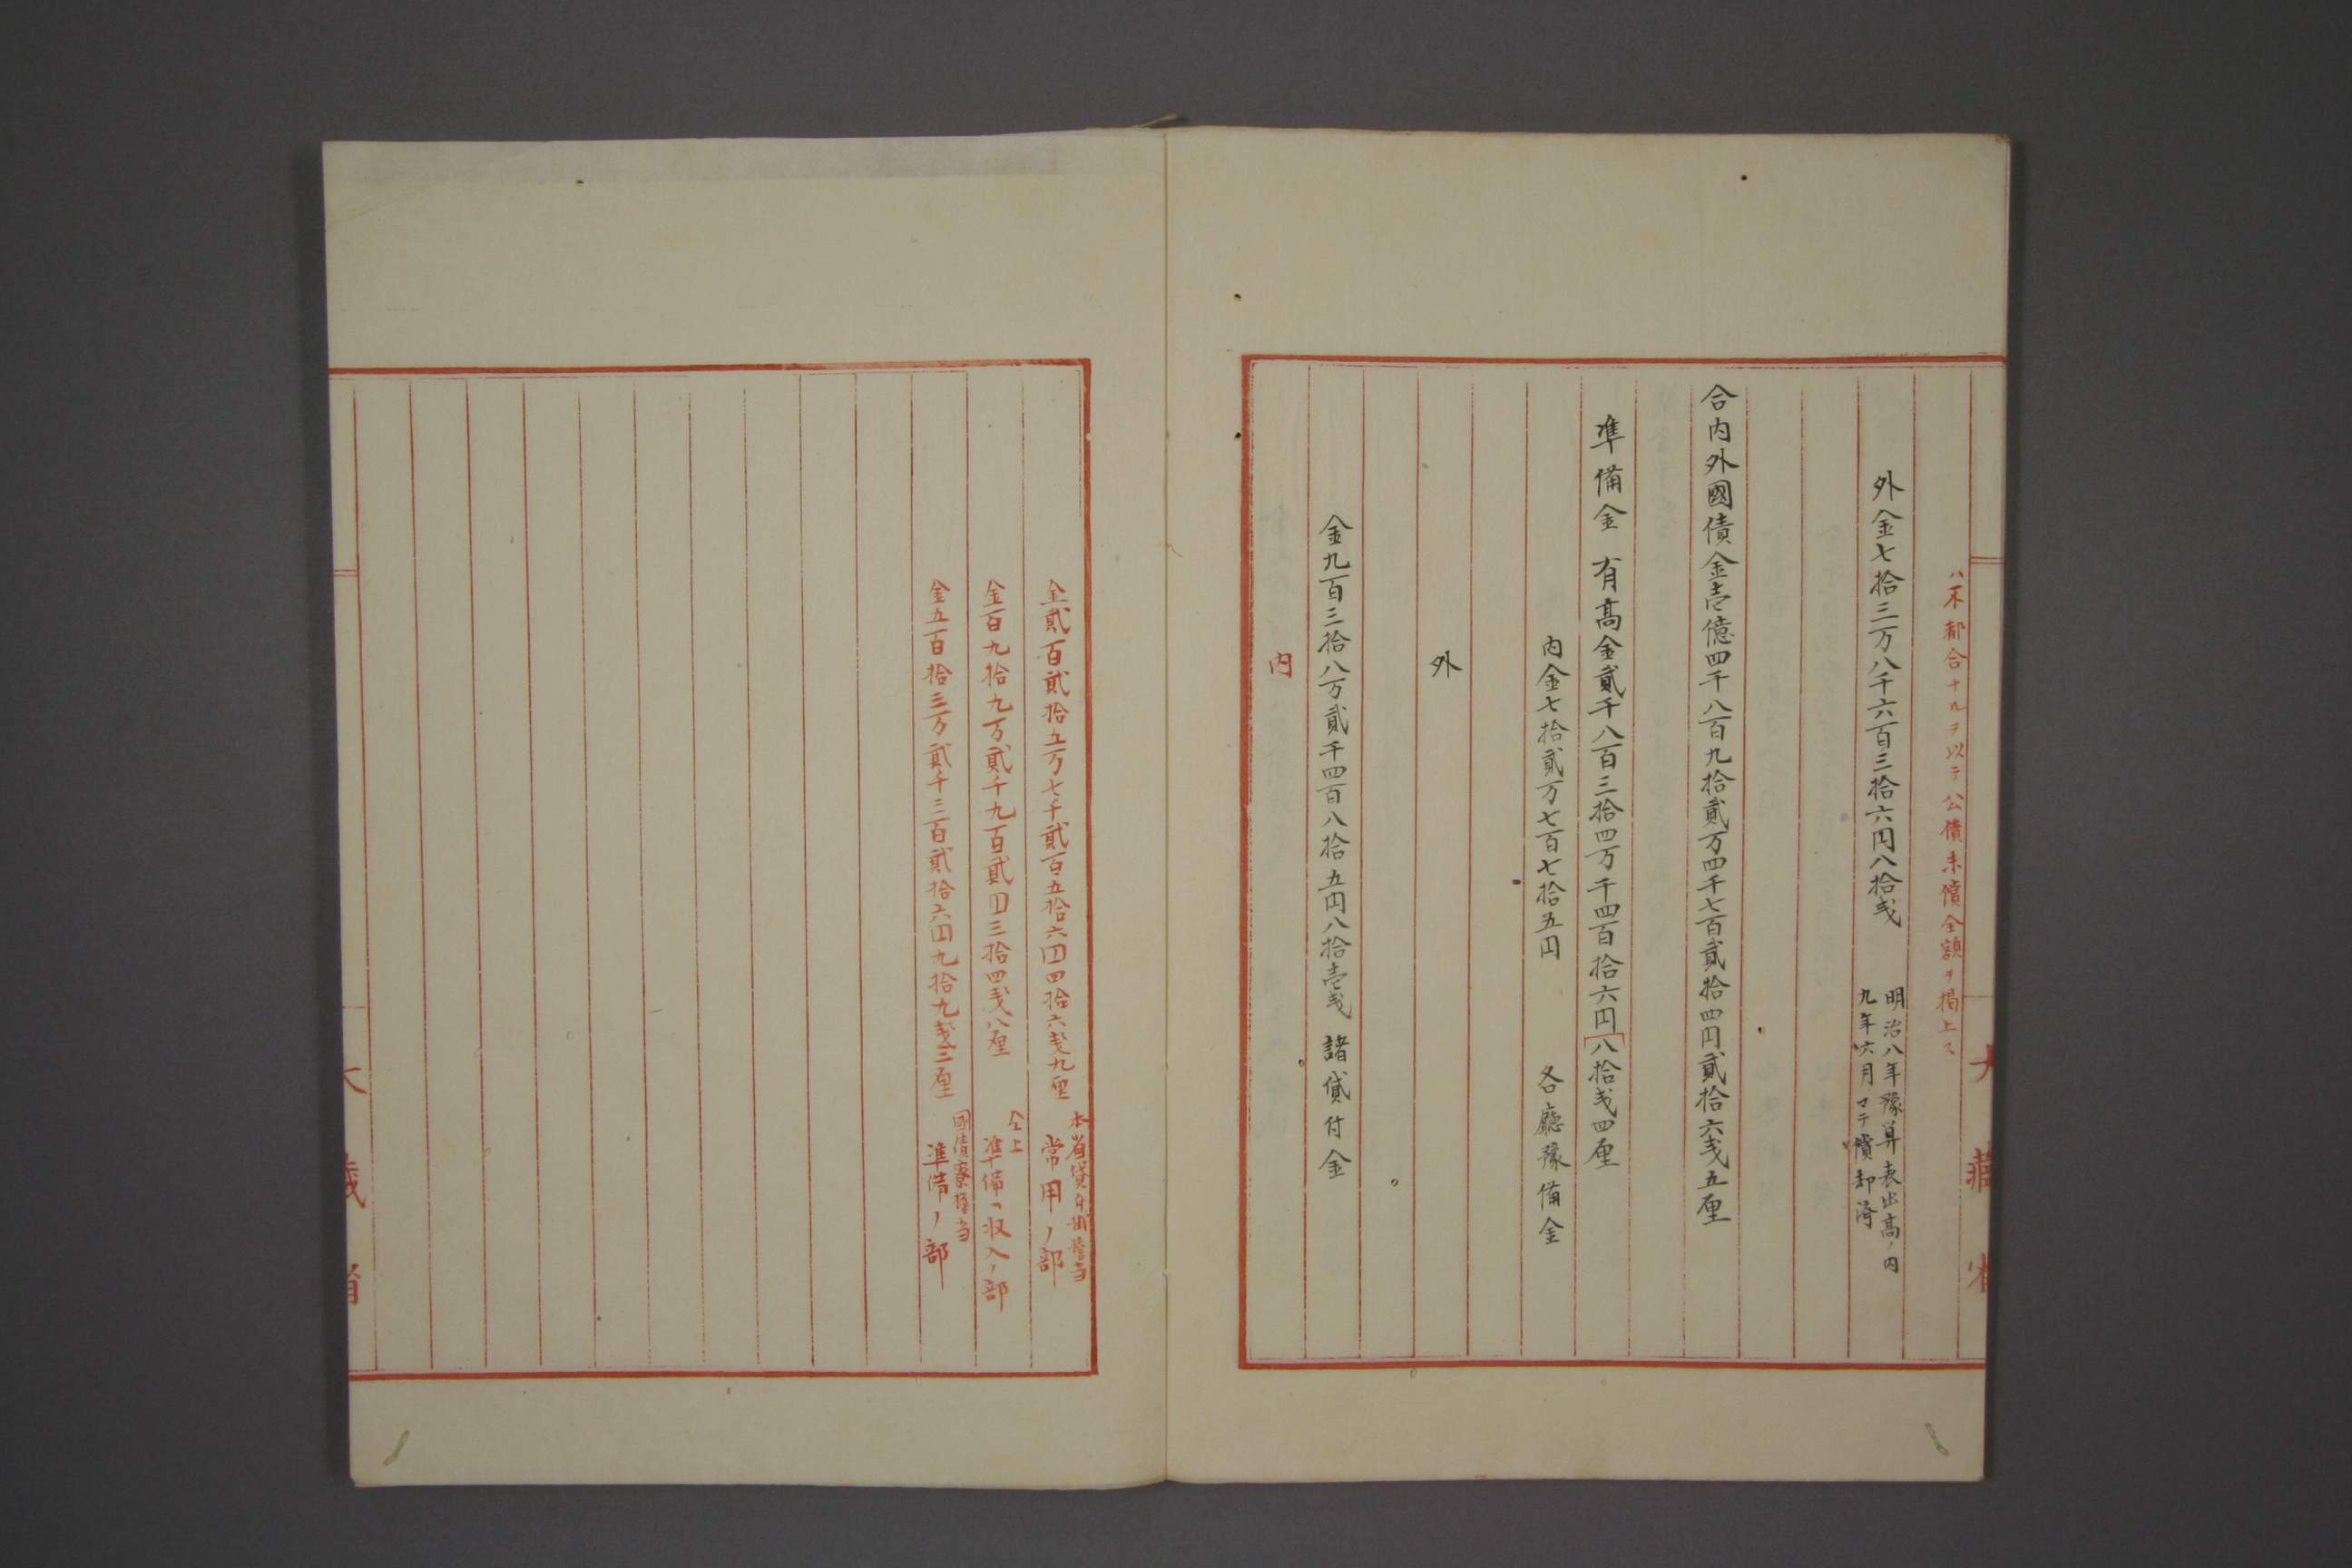 ハ不都合ナルヲ以テ公債未償全額ヲ掲上ス
外金七拾三万八千六百三拾六円八拾戔
明治八年豫算表出高ノ内
九年六月マテ償却済
合内外國債金壱億四千八百九拾貳万四千七百貳拾四円貳拾六戔五厘
準備金 有髙金貳千八百三拾四万千四百拾六円八拾戔四厘
内金七拾貳万七百七拾五円 各廳豫備金
外
金九百三拾八万貳千四百八拾五円八拾壱戔 諸貸付金
内
大藏省
金貳百貳拾五万七千貳百五拾六円四拾六戔九厘
本省貸付掛擔当
常用ノ部
金百九拾九万貳千九百貳円三拾四戔八厘
仝上
準備ヘ収入ノ部
金五百拾三万貳千三百貳拾六円九拾九戔三厘
國債寮擔当
準備ノ部
大藏省